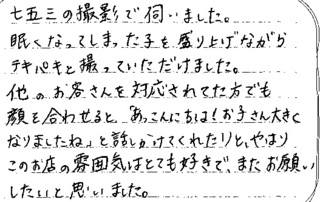 七五三の撮影で伺いました。
眠くなってしまった子を盛り上げながら
テキパキと撮っていただけました。
他のお客さんを対応されてた方でも
顔を合わせると、「あっこんにちは！お子さん大きく
なりましたね」と話しかけてくれたりと、やはり
このお店の雰囲気はとても好きで、またお願い
したいと思いました。